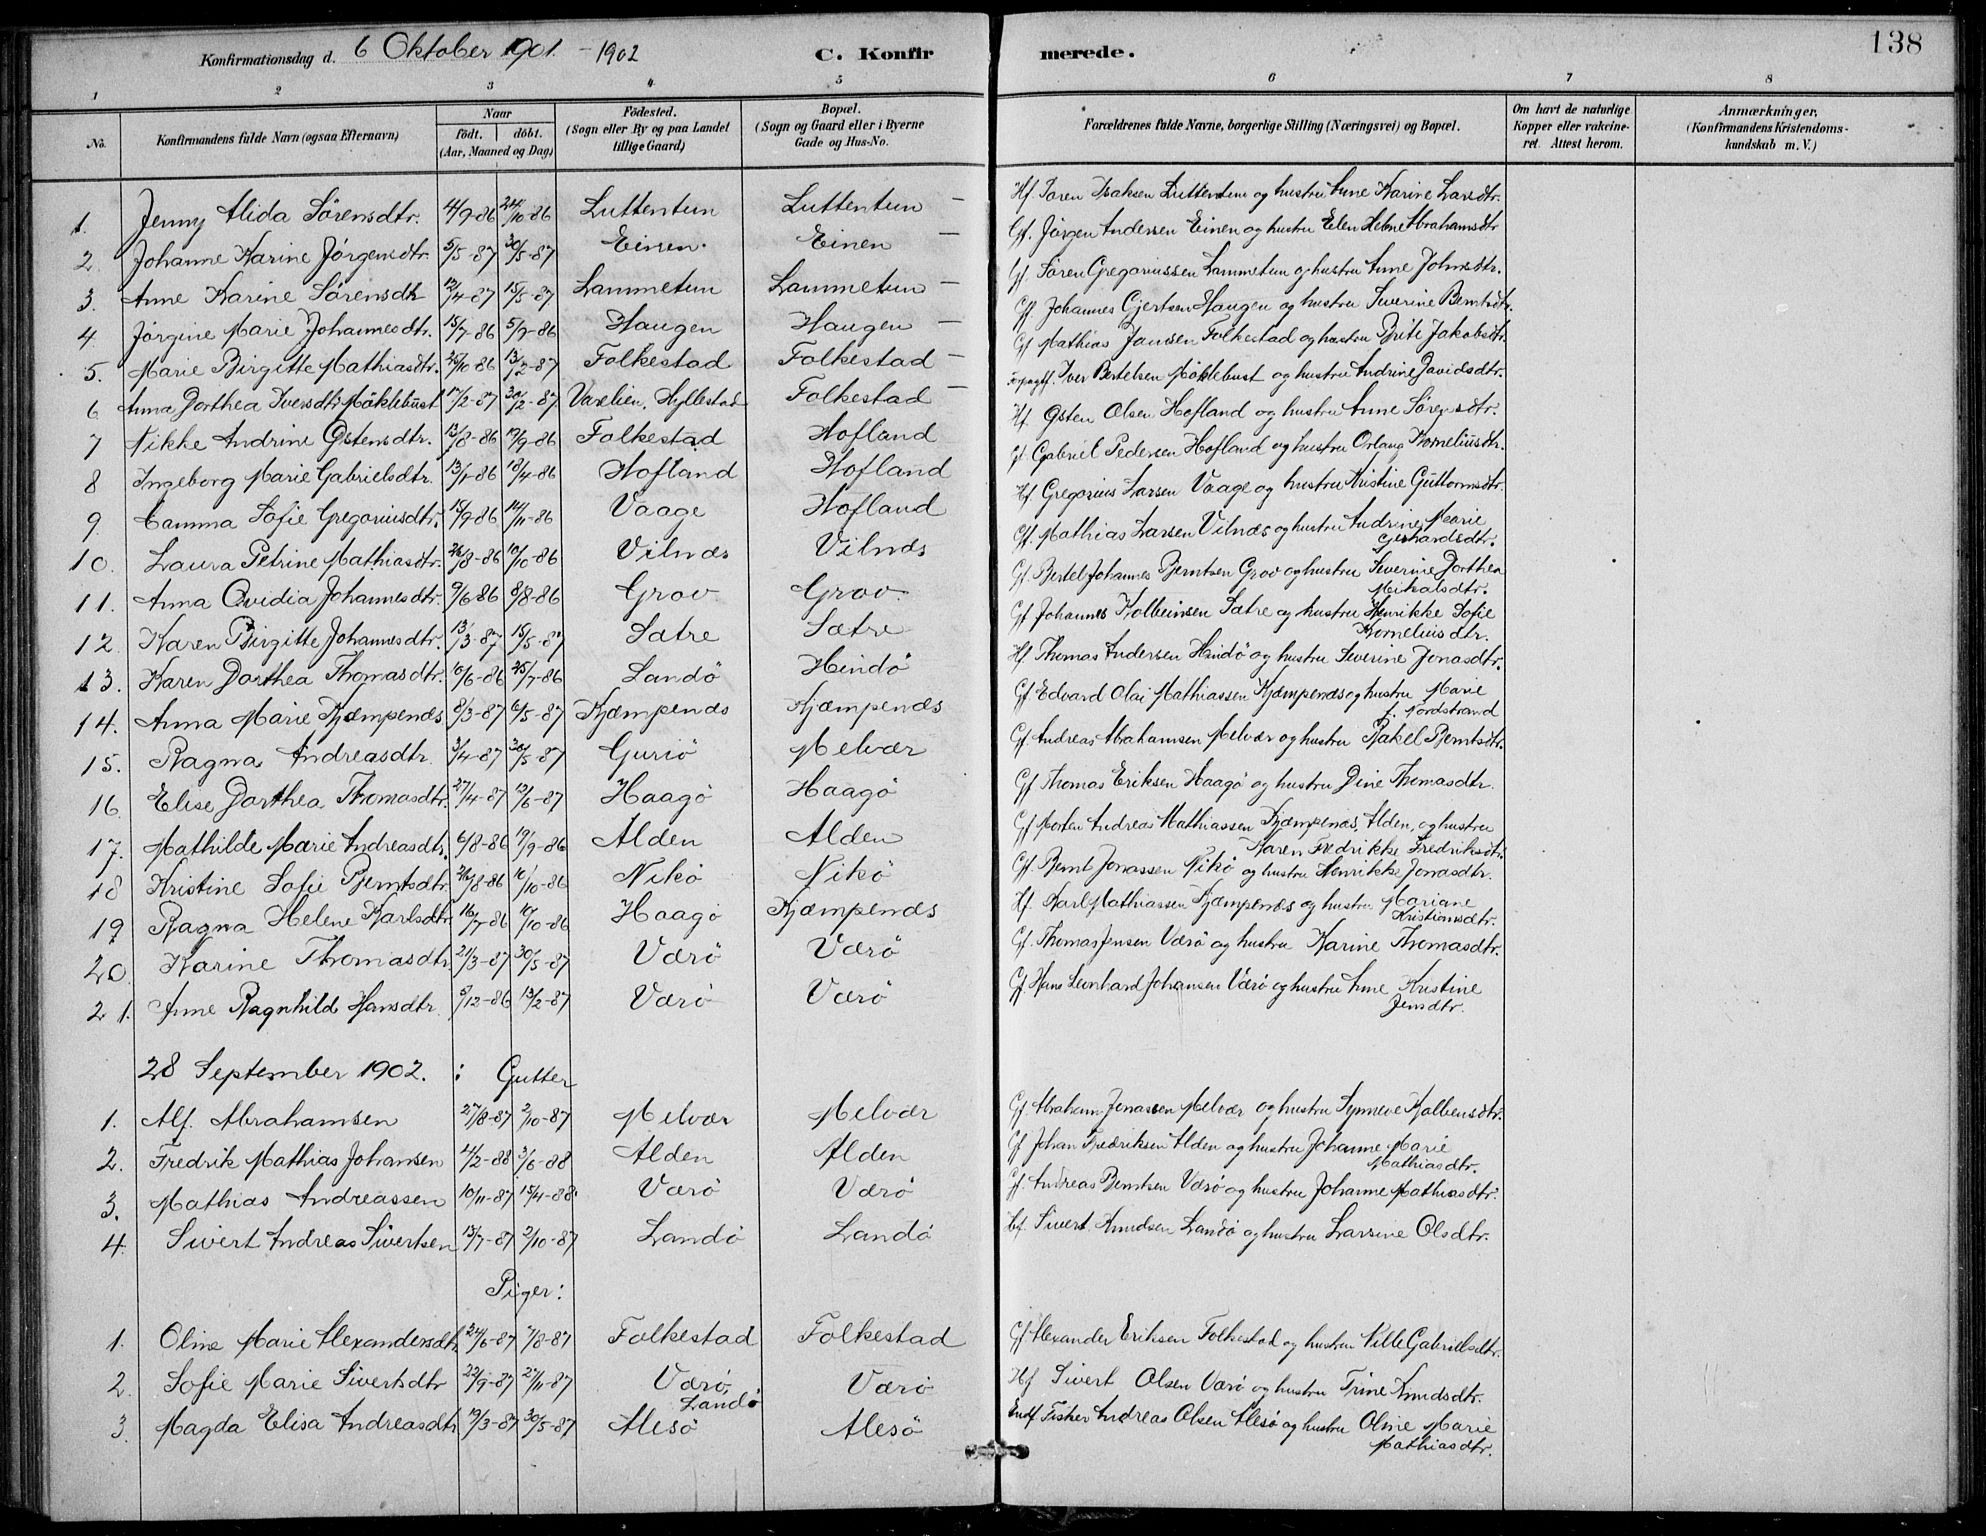 138
Konfirmationsdag d. 6 Oktober 1901. - 1902 C. Konfirmerede.
1 2 3 4 5 6 7 8
No. Konfirmandens fulde Navn (ogsaa Efternavn) Naar født. døbt. (Aar, Maaned og Dag) Fødested. (Sogn eller By og paa Landet tillige Gaard) Bopæl. (Sogn og Gaard eller i Byerne Gade og Hus-No. Forældrenes fulde Navne, borgerlige Stilling (Næringsvei) og Bopæl. Om havt de naturlige Kopper eller vakcineret. Attest herom. Anmærkninger. (Konfirmandens Kristendomskundskab m. V.)
1. Jenny Alida Sørensdtr. 4/9-86 24/10-86 Luttentun Luttentun — Hf. Søren Isaksen Luttentun og hustru Anne Karine Larsdtr.
2. Johanne Karine Jørgensdtr. 5/5-87 30/5-87 Einen. Einen — Gf. Jørgen Andersen Einen og hustru Elen Helene Abrahamsdtr
3. Anne Karine Sørensdtr 12/4-87 15/5-87 Lammetun Lammetun — Gf. Søren Gregoriussen Lammetun og hustru Anne Johnsdtr.
4. Jørgine Marie Johannesdtr. 15/7-86 5/9-86 Haugen Haugen — Gf. Johannes Gjertsen Haugen og hustru Severine Berntsdtr.
5. Marie Birgitte Mathiasdtr. 25/10-86 13/2-87 Folkestad Folkestad — Gf Mathias Jansen Folkestad og hustru Brite Jakobsdtr.
6 Anna Dorthea Iversdtr Møklebust 17/2-87 30/2-87 Varelien, Hyllestad Folkestad — Forpagtf. Iver Bertelsen Møklebust og hustru Andrine Davidsdtr.
7 Nikke Andrine Østensdtr. 13/8-86 19/9-86 Folkestad Hofland Hf. Østen Olsen Hofland og hustru Anne Sørensdtr.
8 Ingeborg Marie Gabrielsdtr. 13/1-86 18/4-86 Hofland Hofland Gf. Gabriel Pedersen Hofland og hustru Orlaug Korneliusdtr.
9. Camma Sofie Gregoriusdtr. 15/9-86 14/11-86 Vaage Hofland Hf. Gregorius Larsen Vaage og hustru Kristine Guttormsdtr.
10. Laura Petrine Mathiasdtr. 26/8-86 10/10-86 Vilnæs Vilnæs Gf. Mathias Larsen Vilnæs og hustru Andrine Marie Gerhardsdtr.
11. Anna Ovidia Johannesdtr. 9/6-86 8/8-86 Grov Grov Gf. Bertel Johannes Berntsen Grov og hustru Severine Dorthea Mikalsdtr.
12 Karen Birgitte Johannesdtr. 13/3-87 15/5-87 Sætre Sætre Gf Johannes Kolbeinsen Sætre og hustru Henrikke Sofie Korneliusdtr.
13. Karen Dorthea Thomasdtr. 10/6-86 25/7-86 Landø Heindø Hf. Thomas Andersen Hindø og hustru Severine Jonasdtr.
14. Anna Marie Kjæmpenæs 8/3-87 6/5-87 Kjæmpenæs Kjæmpenæs Gf Edvard Olai Mathiassen Kjæmpenæs og hustru Marie f. Nordstrand
15. Ragna Andreasdtr. 3/4-87 30/5-87 Guriø Melvær Gf. Andreas Abrahamsen Melvær og hustru Rakel Berntsdtr.
16 Elise Dorthea Thomasdtr. 27/4-87 12/6-87 Haagø Haagø Gf Thomas Eriksen Haagø og hustru Dine Thomasdtr.
17. Mathilde Marie Andreasdtr. 6/8-86 19/9-86 Alden Alden Gf Morten Andreas Mathiassen Kjæmpenæs, Alden, og hustru Karen Fredrikke Fredriksdtr.
18 Kristine Sofie Berntsdtr. 26/8-86 10/10-86 Nikø Nikø Gf. Bernt Jonassen Nikø og hustru Henrikke Jonasdtr.
19 Ragna Helene Karlsdtr. 16/7-86 10/10-86 Haagø Kjæmpenæs Hf. Karl Mathiassen Kjæmpenæs og hustru Mariane Kristiansdtr.
20 Karine Thomasdtr. 21/3-87 30/5-87 Værø Værø Gf. Thomas Jensen Værø og hustru Karine Thomasdtr.
21. Anne Ragnhild Hansdtr. 5/12-86 13/2-87 Værø Værø Gf Hans Leonhard Johansen Værø og hustru Anne Kristine Jensdtr.
28 September 1902. : Gutter
1. Alf. Abrahamsen 27/8-87 2/10-87 Melvær Melvær Gf. Abraham Jonassen Melvær og hustru Synneve Kolbensdtr.
2. Fredrik Mathias Johansen 4/2-88 3/6-88 Alden Alden Gf Johan Fredriksen Alden og hustru Johanne Marie Mathiasdtr.
3. Mathias Andreassen 10/11-87 15/4-88 Værø Værø Gf. Andreas Berntsen Værø og hustru Johanne Mathiasdtr.
4. Sivert Andreas Sivertsen 13/7-87 2/10-87 Landø Landø Hf. Sivert Knudsen Landø og hustru Larsine Olsdtr.
Piger:
1. Oline Marie Alexandersdtr. 24/6-87 7/8-87 Folkestad Folkestad Gf Alexander Eriksen Folkestad og hustru Nille Gabrielsdtr.
2 Sofie Marie Sivertsdtr 22/9-87 27/11-87 Værø, Landø Værø Hf Sivert Olsen Værø og hustru Trine Knudsdtr.
3. Magda Elisa Andreasdtr. 19/3-87 30/5-87 Alesø Alesø Indf Fisker Andreas Olsen Alesø og hustru Oline Marie Mathiasdtr.